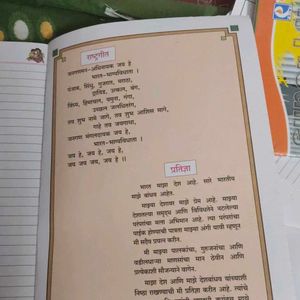 राष्ट्रगीत
जनगणमन-अधिनायक जय हे
भारत-भाग्यविधाता ।
पंजाब, सिंधु, गुजरात, मराठा,
द्राविड, उत्कल, बंग,
विंध्य, हिमाचल, यमुना, गंगा,
उच्छल जलधितरंग,
तव शुभ नामे जागे, तव शुभ आशिस मागे,
गाहे तव जयगाथा,
जनगण मंगलदायक जय हे,
भारत-भाग्यविधाता ।
जय हे, जय हे, जय हे,
जय जय जय, जय हे ।।
प्रतिज्ञा
भारत माझा देश आहे. सारे भारतीय
माझे बांधव आहेत.
माझ्या देशावर माझे प्रेम आहे. माझ्या
देशातल्या समृद्ध आणि विविधतेने नटलेल्या
परंपरांचा मला अभिमान आहे. त्या परंपरांचा
पाईक होण्याची पात्रता माझ्या अंगी यावी म्हणून
मी सदैव प्रयत्न करीन.
मी माझ्या पालकांचा, गुरुजनांचा आणि
वडीलधाऱ्या माणसांचा मान ठेवीन आणि
प्रत्येकाशी सौजन्याने वागेन.
माझा देश आणि माझे देशबांधव यांच्याशी
निष्ठा राखण्याची मी प्रतिज्ञा करीत आहे. त्यांचे